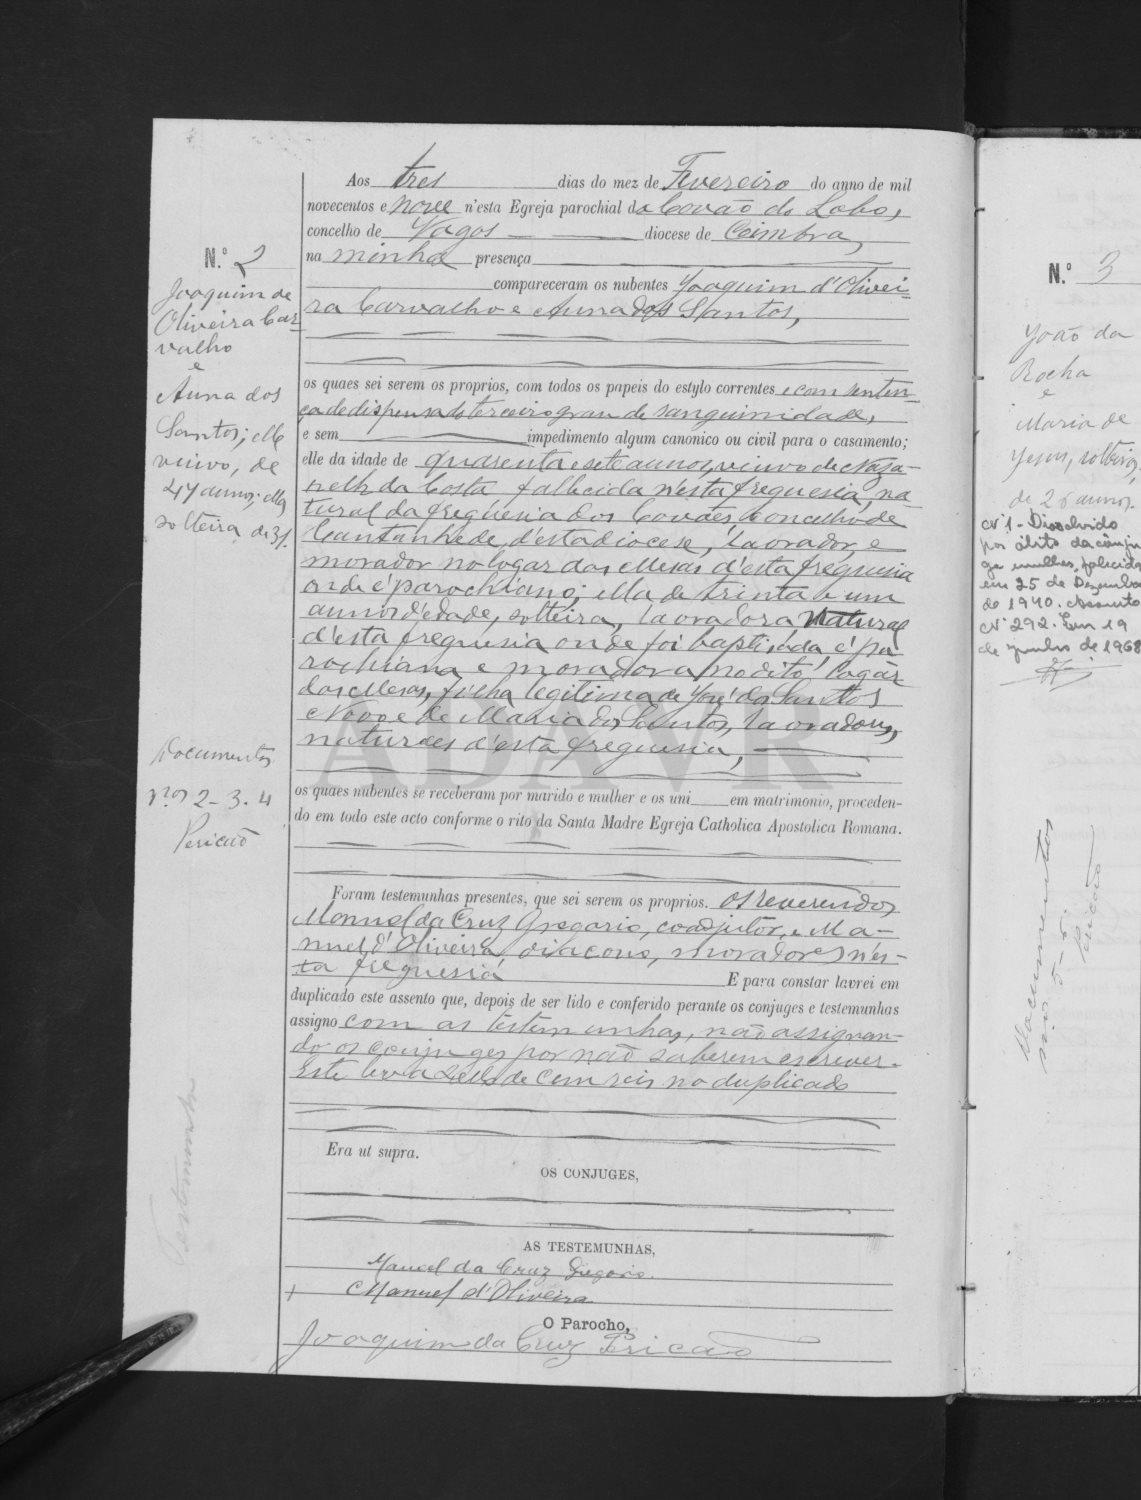 N.º 2
Joaquim de
Oliveira Car-
valho
e
Anna dos
Santos; elle
viuvo, de
47 annos; ella
solteira de 31.
Documentos
n.os 2-3-4
Pericão
Testemunho
Aos tres dias do mez de Fevereiro do anno de mil
novecentos e nove n'esta Egreja parochial da Covão do Lobo,
concelho de Vagos diocese de Coimbra,
na minha presença
compareceram os nubentes Joaquim d'Olivei-
ra Carvalho e Anna dos Santos,
os quaes sei serem os proprios, com todos os papeis do estylo correntes e com senten-
ça de dispensa do terceiro grau de sanguinidade,
e sem impedimento algum canonico ou civil para o casamento;
elle da idade de quarenta e sete annos, viuvo de
da Costa fallecida n'esta freguesia, na-
tural da freguesia dos Covões, concelho de
Cantanhede, d'esta diocese, lavrador, e
morador no logar das Mesas d'esta freguesia
onde é parochiano; ella de trinta e um
annos d'edade, solteira, lavradora natural
d'esta freguesia onde foi baptisada, é pa-
rochiana e moradora no dito logar
das Mesas, filha legitima de José dos Santos
Novo e de Maria dos Santos, lavradores,
naturaes d'esta freguesia,
os quaes nubentes se receberam por marido e mulher e os uni em matrimonio, proceden-
do em todo este acto conforme o rito da Santa Madre Egreja Catholica Apostolica Romana.
Foram testemunhas presentes, que sei serem os proprios. os reverendos
Manuel da Cruz Gregorio, coadjutor, e Ma-
nuel d'Oliveira, diacono, moradores n'es-
ta freguesia
E para constar lavrei em
duplicado este assento que, depois de ser lido e conferido perante os conjuges e testemunhas
assigno com as testemunhas, não assignan-
do os conjuges por não saberem escrever.
Este leva sello de cem reis no duplicado
Era ut supra.
OS CONJUGES,
AS TESTEMUNHAS,
Manuel da Cruz Gregorio.
Manuel d'Oliveira
O Parocho,
Joaquim da Cruz Pericão
ADAVR
N.º 3
João da
Rocha
e
Maria de
Jesus, solteiros,
de 26 annos.
Nº 1 - Dissolvido
por óbito da cônju
ge mulher, falecida
em 25 de Dezembro
de 1940. Assento
Nº 292. Em 19
de Junho de 1968
Documentos
n.os 5-6.
Pericão